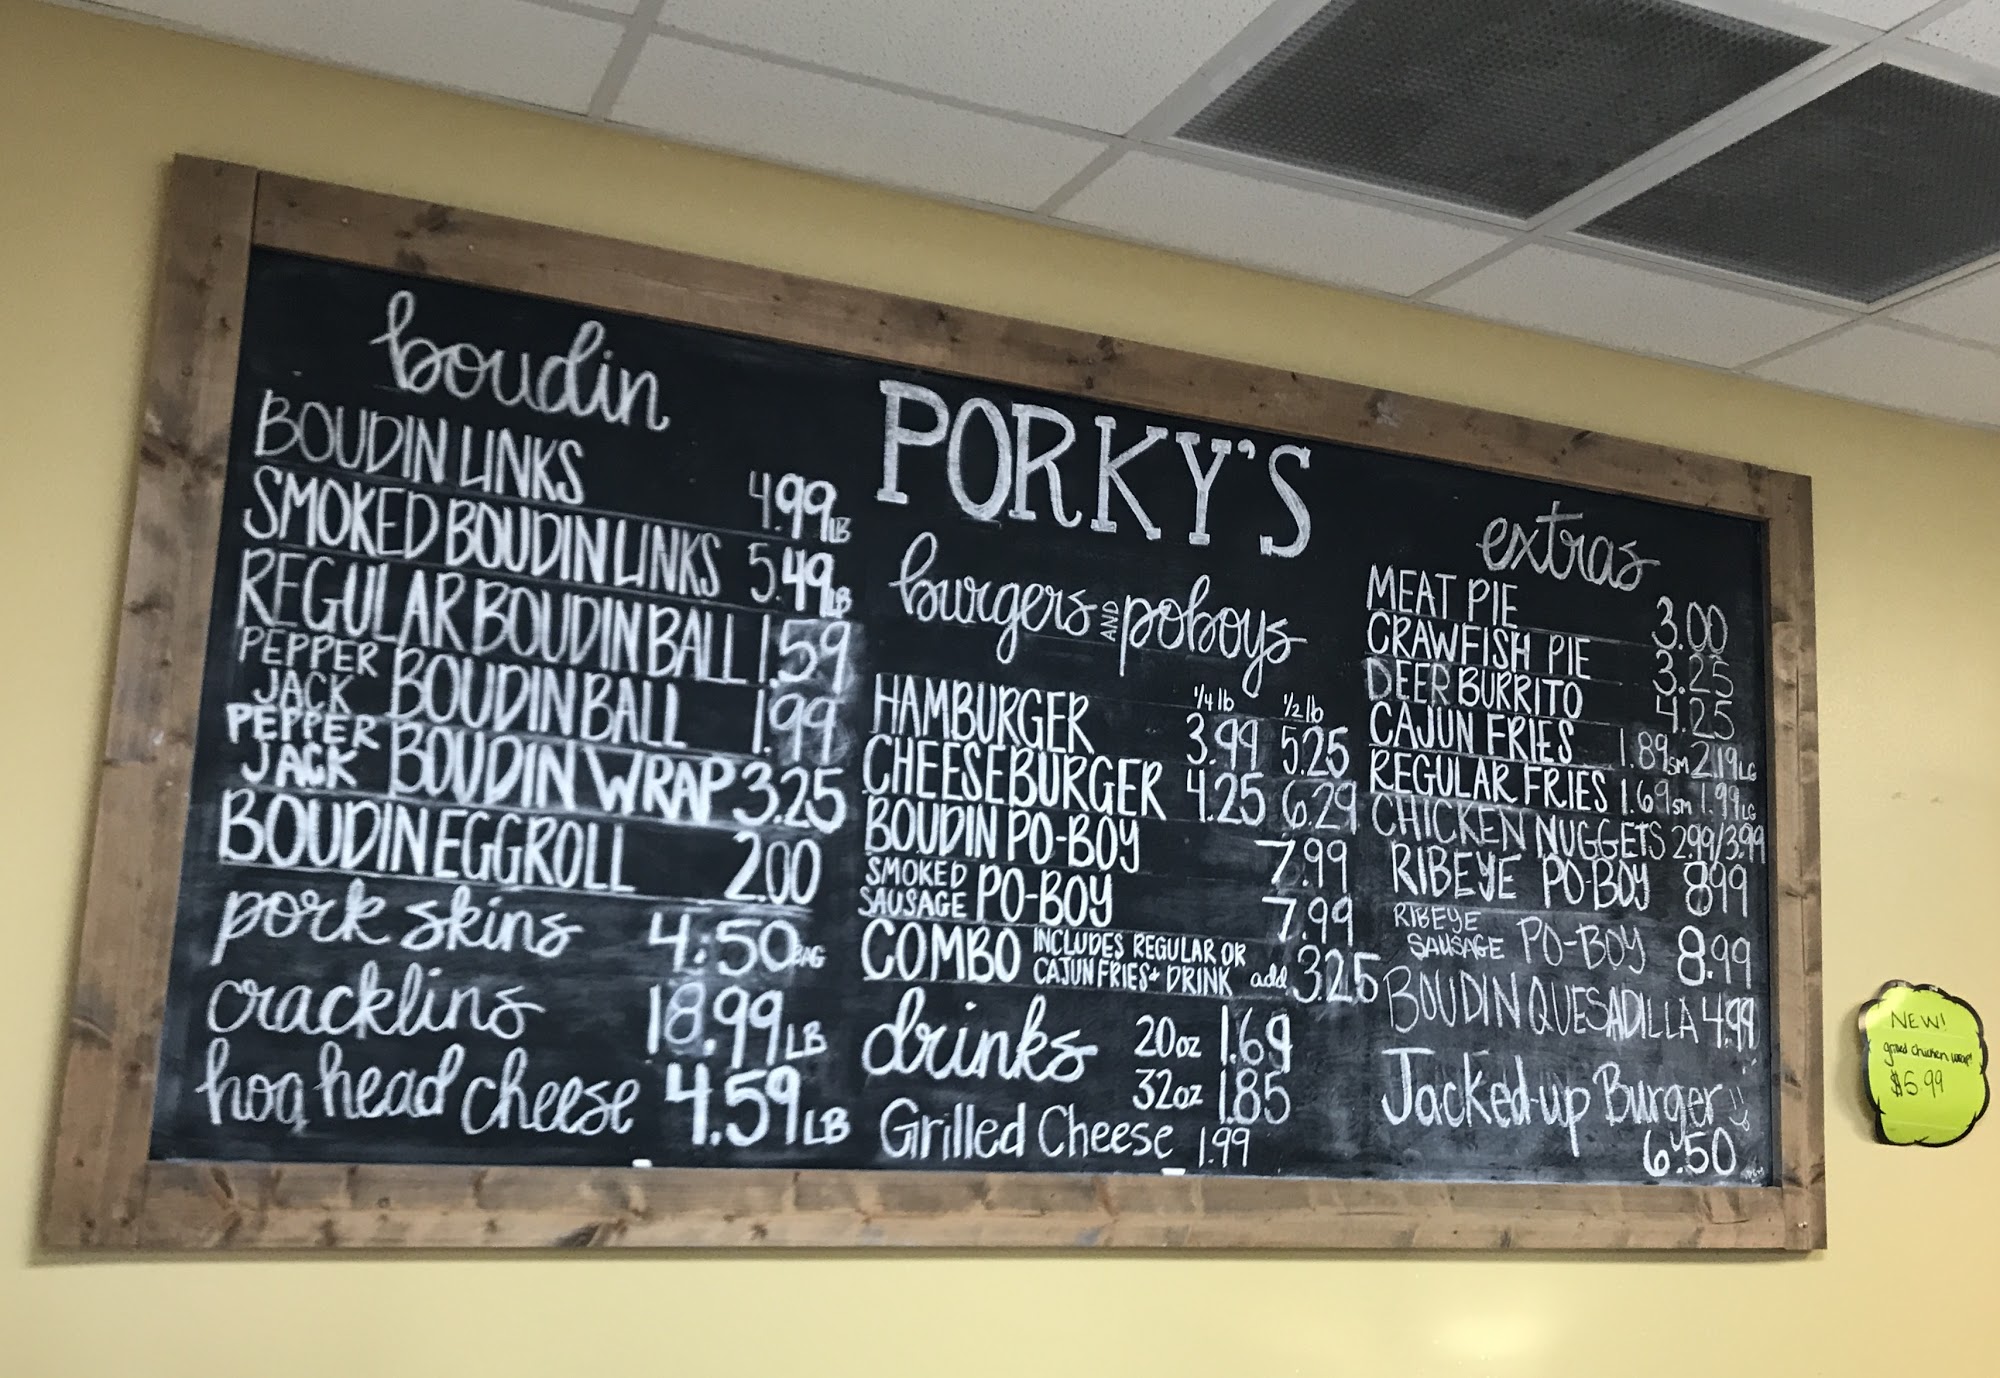 boudin
BOUDIN LINKS 4.99 LB
SMOKED BOUDIN LINKS 5.49 LB
REGULAR BOUDIN BALL 1.59
PEPPER JACK BOUDIN BALL 1.99
PEPPER JACK BOUDIN WRAP 3.25
BOUDIN EGGROLL 2.00
pork skins 4.50 BAG
cracklins 18.99 LB
hog head cheese 4.59 LB
PORKY'S
burgers AND poboys
1/4 lb 1/2 lb
HAMBURGER 3.99 5.25
CHEESEBURGER 4.25 6.29
BOUDIN PO-BOY 7.99
SMOKED SAUSAGE PO-BOY 7.99
COMBO INCLUDES REGULAR OR
CAJUN FRIES + DRINK add 3.25
drinks 20oz 1.69
32oz 1.85
Grilled Cheese 1.99
extras
MEAT PIE 3.00
CRAWFISH PIE 3.25
DEER BURRITO 4.25
CAJUN FRIES 1.89 SM 2.19 LG
REGULAR FRIES 1.69 SM 1.99 LG
CHICKEN NUGGETS 2.99/3.99
RIBEYE PO-BOY 8.99
RIBEYE SAUSAGE PO-BOY 8.99
BOUDIN QUESADILLA 4.99
Jacked-up Burger
6.50
NEW!
grilled chicken wrap!
$5.99